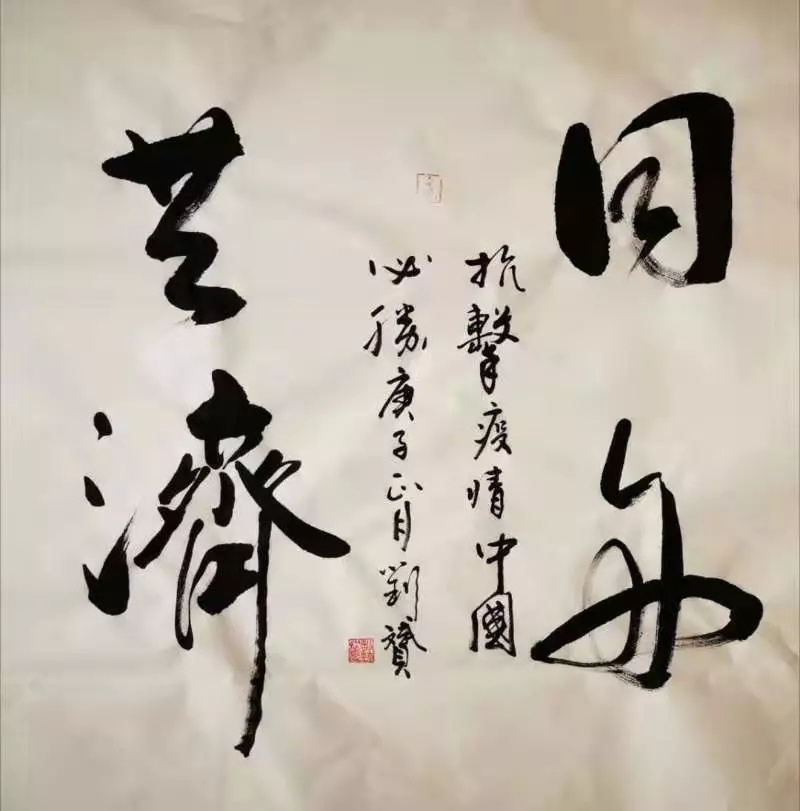 同舟
抗擊疫情中國
必勝庚子正月劉贇
共濟